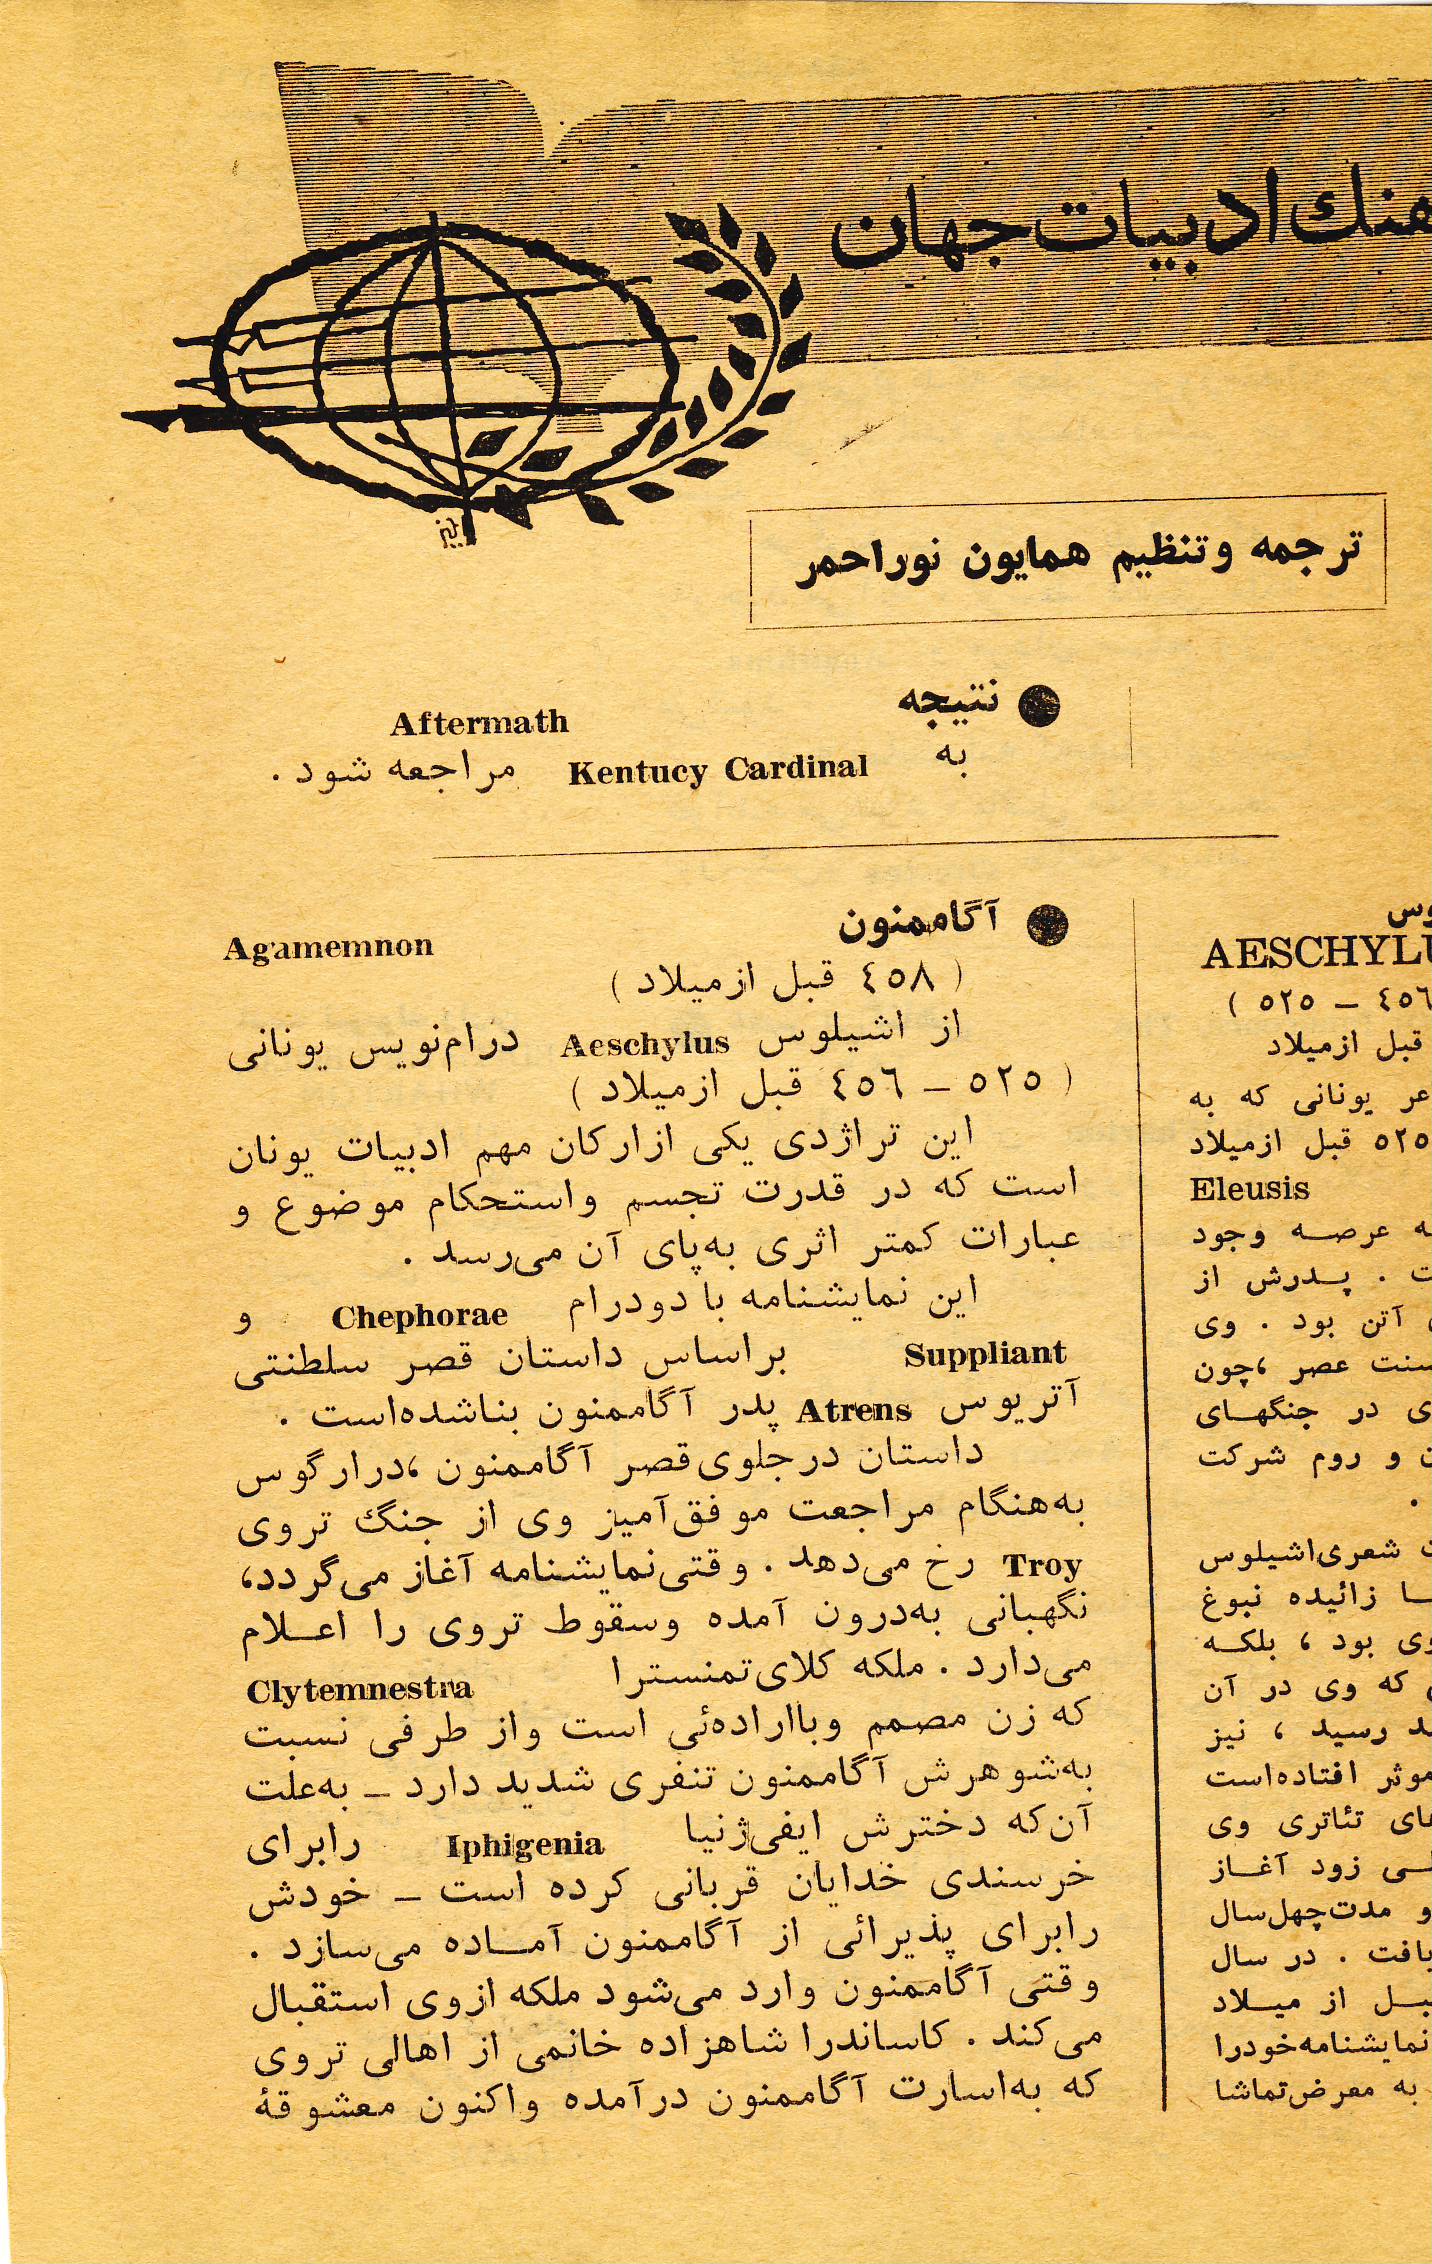 ادبیات جهان
ترجمه وتنظیم همایون نوراحمر
نتیجه Aftermath
به Kentucy Cardinal مراجعه شود .
آگاممنون Agamemnon
( ٤٥٨ قبل ازمیلاد )
از اشیلوس Aeschylus درام‌نویس یونانی
( ٥٢٥ – ٤٥٦ قبل ازمیلاد )
این تراژدی یکی ازارکان مهم ادبیات یونان
است که در قدرت تجسم واستحکام موضوع و
عبارات کمتر اثری به‌پای آن می‌رسد .
این نمایشنامه با دودرام Chephorae و
Suppliant براساس داستان قصر سلطنتی
آتریوس Atrens پدر آگاممنون بناشده‌است .
داستان درجلوی‌قصر آگاممنون ،درارگوس
به‌هنگام مراجعت موفق‌آمیز وی از جنگ تروی
Troy رخ می‌دهد . وقتی‌نمایشنامه آغاز می‌گردد،
نگهبانی به‌درون آمده وسقوط تروی را اعلام
می‌دارد . ملکه کلای‌تمنسترا Clytemnestra
که زن مصمم وبااراده‌ئی است واز طرفی نسبت
به‌شوهرش آگاممنون تنفری شدید دارد – به‌علت
آن‌که دخترش ایفی‌ژنیا Iphigenia رابرای
خرسندی خدایان قربانی کرده است – خودش
رابرای پذیرائی از آگاممنون آماده می‌سازد .
وقتی آگاممنون وارد می‌شود ملکه ازوی استقبال
می‌کند . کاساندرا شاهزاده خانمی از اهالی تروی
که به‌اسارت آگاممنون درآمده واکنون معشوقهٔ
٤٥٦ – ٥٢٥ )
قبل ازمیلاد
یونانی که به
٥٢٥ قبل ازمیلاد
Eleusis
عرصه وجود
. پدرش از
آتن بود . وی
سنت عصر ،چون
در جنگهای
و روم شرکت
.
شعری‌اشیلوس
زائیده نبوغ
بود ، بلکه
که وی در آن
رسید ، نیز
موثر افتاده‌است
تئاتری وی
زود آغاز
و مدت‌چهل‌سال
. در سال
از میلاد
نمایشنامه‌خودرا
به معرض‌تماشا